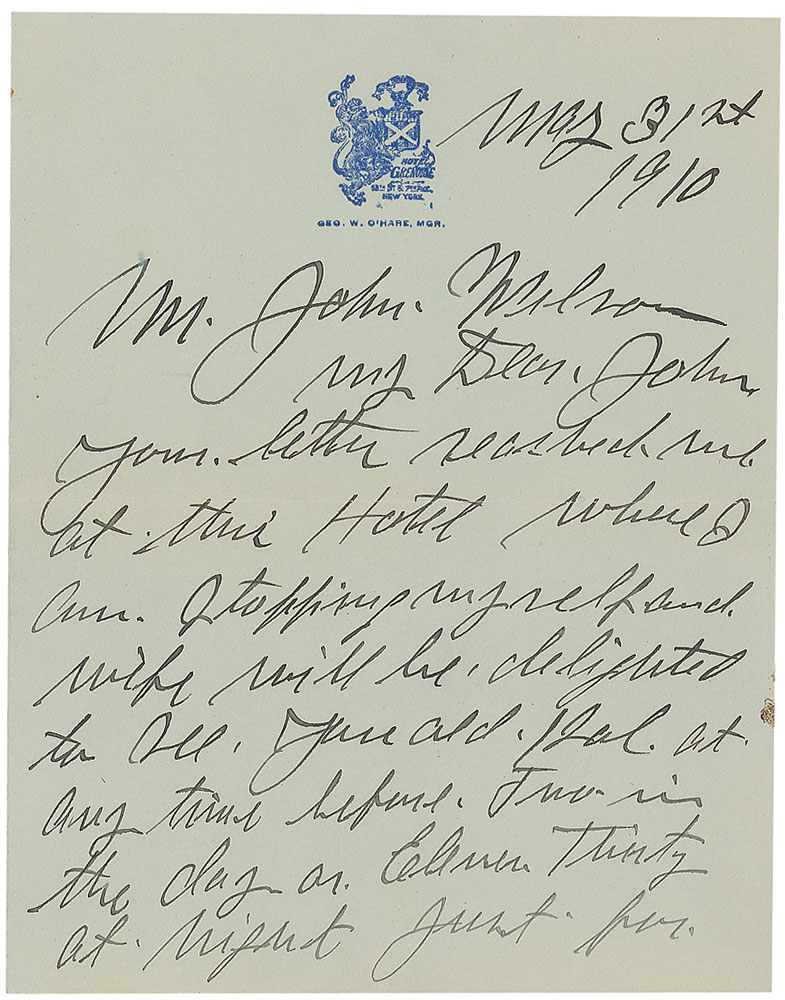 HOTEL
GRENOBLE
56TH ST & 7TH AVE.
NEW YORK.
GEO. W. O'HARE, MGR.
May 31st
1910
Mr. John. Wilson
my Dear. John.
your. letter reached. me.
at. this Hotel where I
am. Stopping myself and.
wife will be. delighted
to See. You old. Pal. at.
any time before. Two in
the day or. Eleven Thirty
at. night just. for.